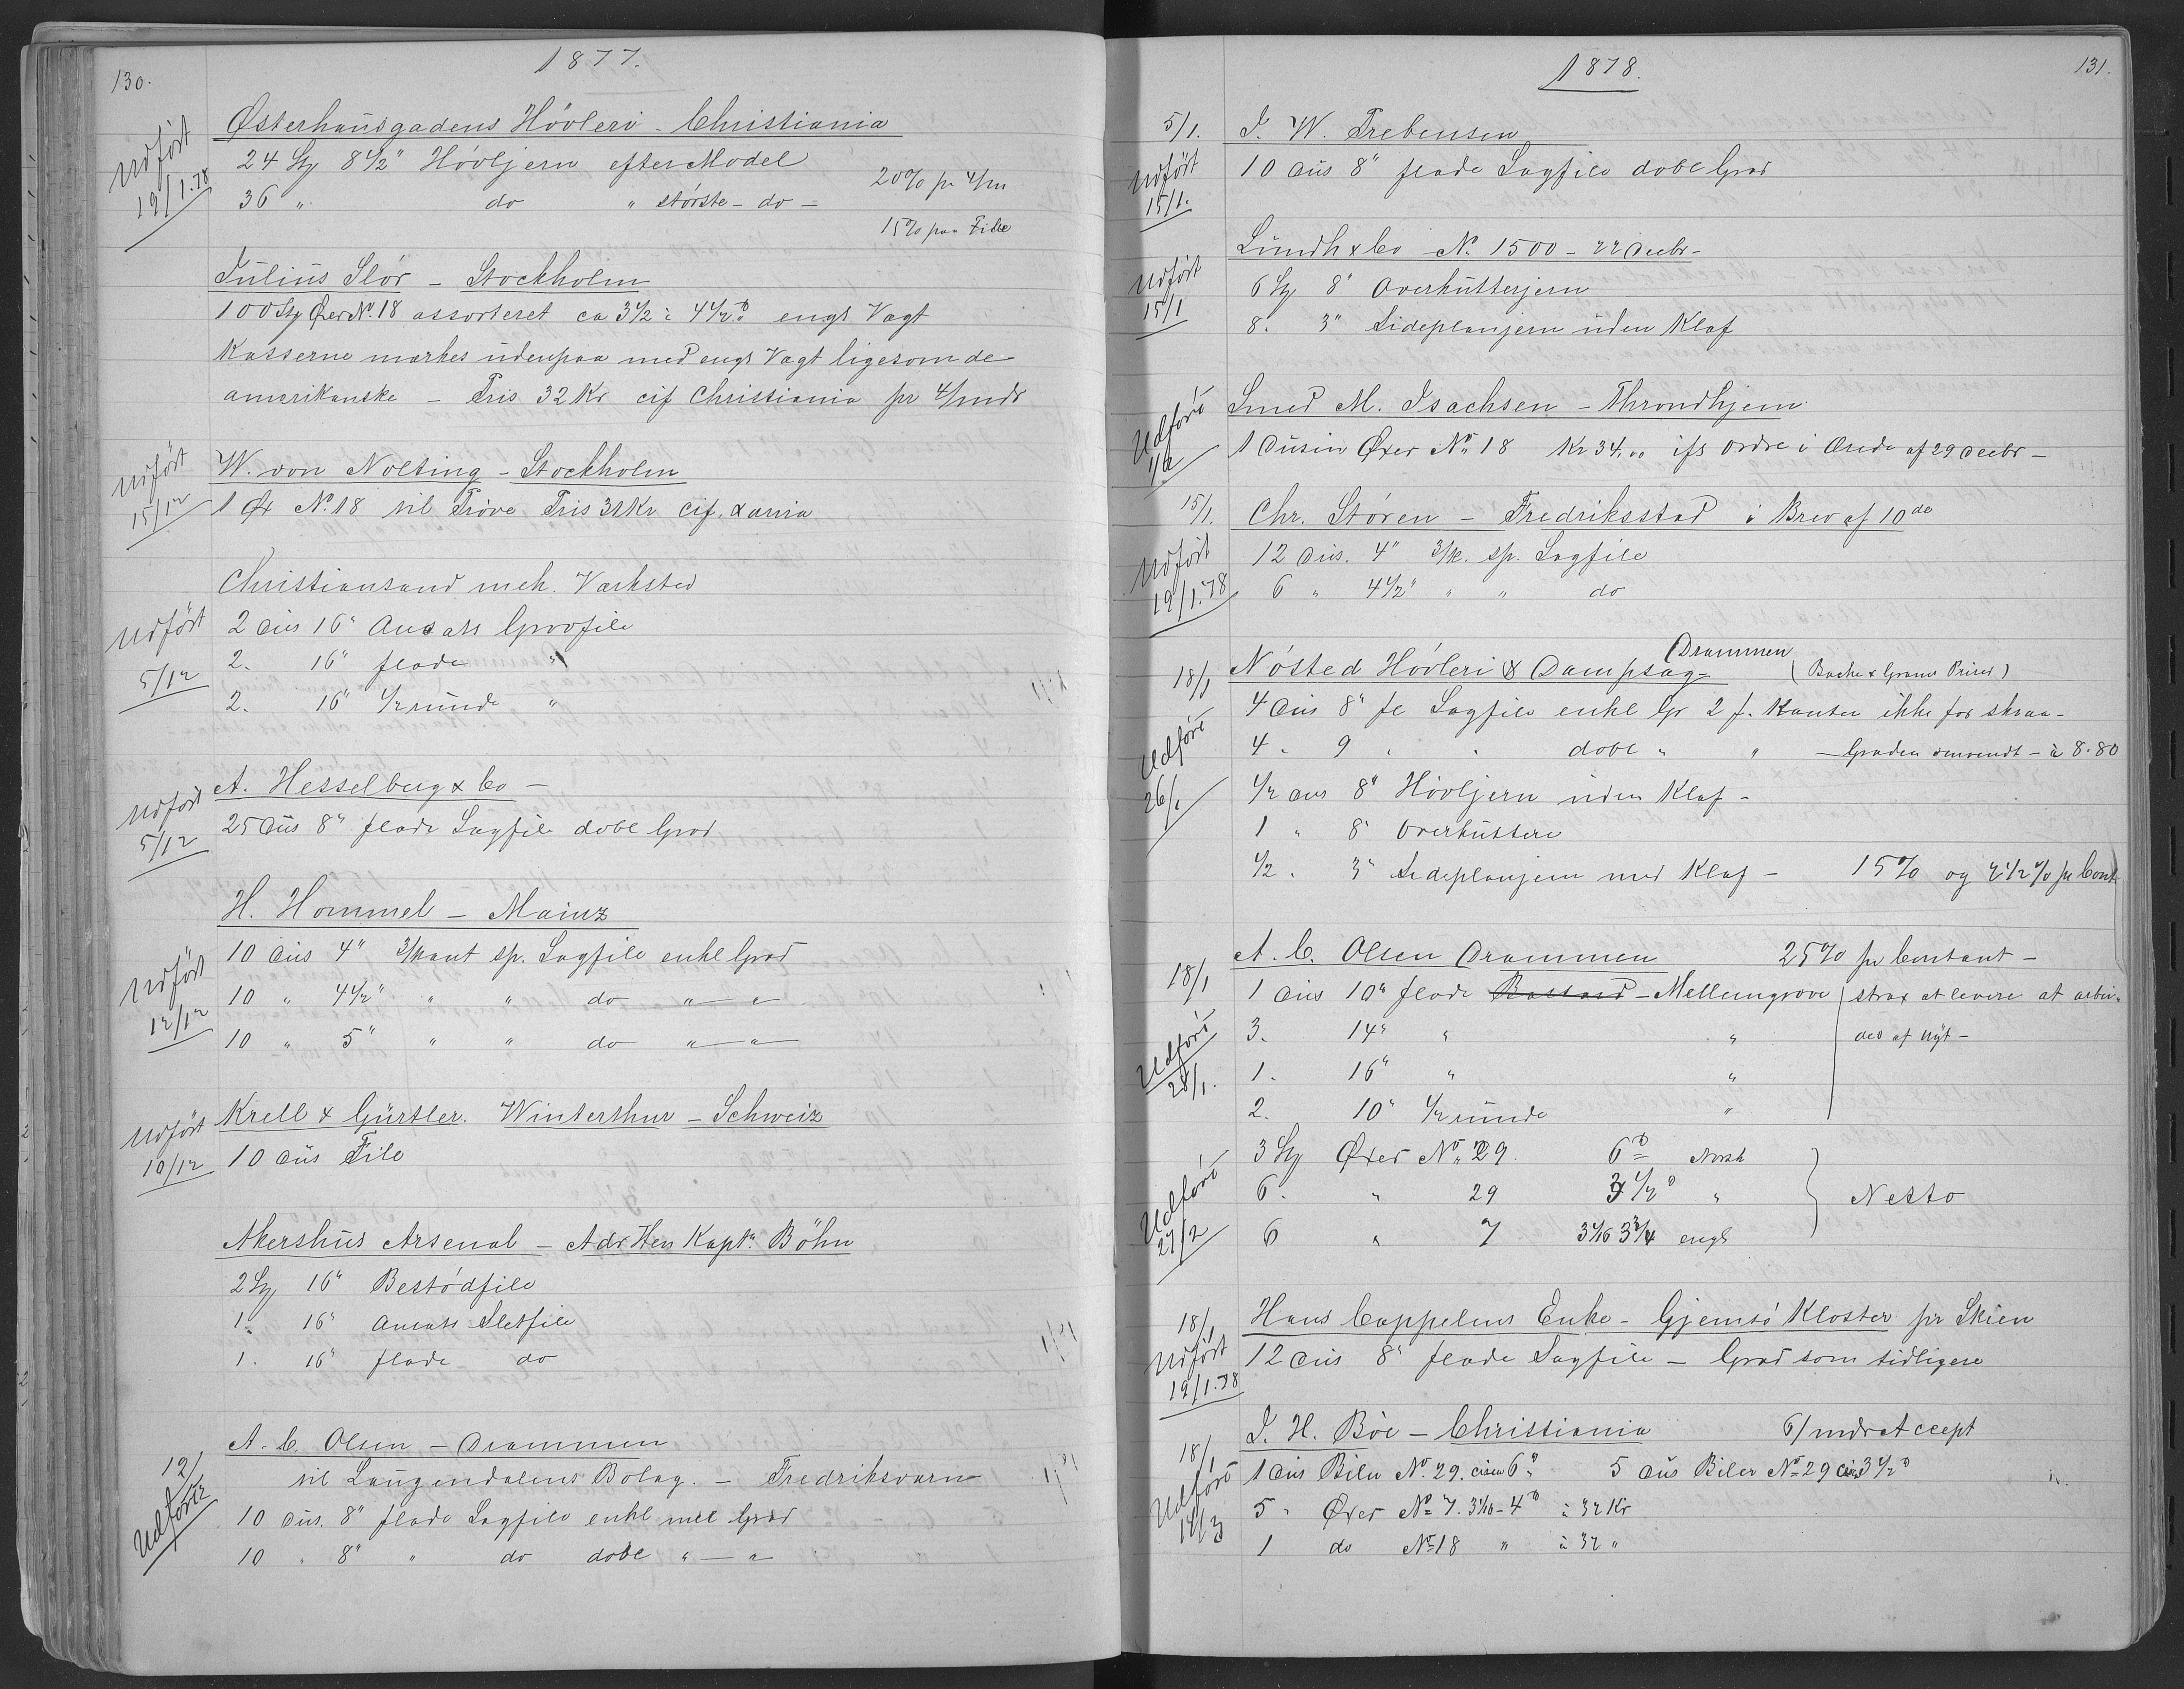 130.
1877.
Østerhausgadens Høvleri - Christiania
Udført 19/1.78
24 Stg 8 1/2" Høvljern efter Model
20% pr 4/m
36 " do " største - do -
15% paa File
Julius Slör - Stockholm
100 Stg Øxer No. 18 assorteret ca 3 1/2 à 4 1/2 ℔ engl Vægt
Kasserne mærkes udenpaa med engl Vægt ligesom de
amerikanske - Pris 32 Kr cif Christiania pr 4/mdr
Udført 15/12
W. von Nolting - Stockholm
1 Øx No. 18 til Prøve Pris 32 Kr cif. Xania
Christiansand mek. Værksted
Udført 5/12
2 Dus 16" Ansats Grovfile
2. 16" flade "
2. 16" 1/2 runde "
A. Hesselberg & Co -
Udført 5/12
25 Dus 8" flade Sagfile dobl Grad
H. Hommel - Mainz
Udført 12/12
10 Dus 4" 3/kant sp. Sagfile enkl Grad
10 " 4 1/2" " " do " - "
10 " 5" " " do " - "
Krell & Gürtler. Winterthur - Schweiz
Udført 10/12
10 Dus File
Akershus Arsenal - Adr Herr Kaptn Böhn
2 Stg 16" Bestødfile
1. 16" Ansats Sletfile
1. 16" flade do
A. C. Olsen - Drammen
12/12 Udført
til Laugendalens Bolag. - Fredriksværn
10 Dus. 8" flade Sagfile enkl Grad
10 " 8" " do dobl " - "
1878.
131.
5/1. J. W. Trebensen
Udført 15/1.
10 Dus 8" flade Sagfile dobl Grad
Lundh & Co No. 1500 - 22 Decbr -
Udført 15/1
6 Stg 8" Overkutterjern
8. 3" Sideplanjern uden Klaf
Smed M. Isachsen - Throndhjem
Udført
1 Dusin Øxer No. 18 Kr 34.00 ifl Ordre i Brede af 29 Decbr -
15/1. Chr. Støren - Fredriksstad i Brev af 10de
Udført 19/1.78
12 Dus. 4" 3/k. sp. Sagfile
6 " 4 1/2" " " do
Drammen
18/1 Nøsted Høvleri & Dampsag - (Bache & Grams Priser)
4 Dus 8" fl Sagfile enkl Gr 2 f. Kanter ikke for skraa -
Udført 26/1
4 " 9 " " dobl " " - Graden omvendt - à 8.80
1/2 Dus 8" Høvljern uden Klaf -
1 " 8" Overkuttere
1/2 . 3" Sideplanjern med Klaf - 15% og 2 1/2 % pr Cont
18/1 A. C. Olsen Drammen 25% pr Contant -
1 Dus 10" flade Bastard - Mellemgrove strax at levere at arbei-
Udført 28/1.
3. 14" " " des af nyt -
1. 16" " "
2. 10" 1/2 runde "
Udført 27/2
3 Stg Øxer No. 29. 6 ℔ Norsk
6. " 29 3 1/2 ℔ " Netto
6 " 7 3 1/16 3 3/4 engl
18/1 Hans Cappelens Enke - Gjemsø Kloster pr Skien
Udført 19/1.78
12 Dus 8" flade Sagfile - Grad som tidligere
18/1 J. H. Böe - Christiania 6/mdr Accept
Udført 14/3
1 Dus Biler No. 29. circa 6 ℔ 5 Dus Biler No. 29 circa 3 1/2 ℔
5 " Øxer No. 7. 3 1/16 - 4 ℔ à 32 Kr
1 do No. 18 " à 32 "